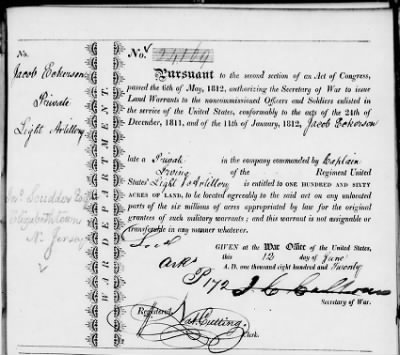 No.
Jacob Eckerson
Private
Light Artillery
Scudder
Elizabethtown
N. Jersey
WAR DEPARTMENT.
No.
Pursuant to the second section of an Act of Congress,
passed the 6th of May, 1812, authorizing the Secretary of War to issue
Land Warrants to the noncommissioned Officers and Soldiers enlisted in
the service of the United States, conformably to the acts of the 24th of
December, 1811, and of the 11th of January, 1812, Jacob Eckerson
late a Private in the company commanded by Captain
Irving of the Regiment United
States' Light Artillery is entitled to ONE HUNDRED AND SIXTY
ACRES OF LAND, to be located agreeably to the said act on any unlocated
parts of the six millions of acres appropriated by law for the original
grantees of such military warrants; and this warrant is not assignable or
transferable in any manner whatever.
GIVEN at the War Office of the United States,
this 12 day of June
A. D. one thousand eight hundred and Twenty
Ark
P 172 J. C. Calhoun
Secretary of War.
Registered Nat Cutting
Clerk.